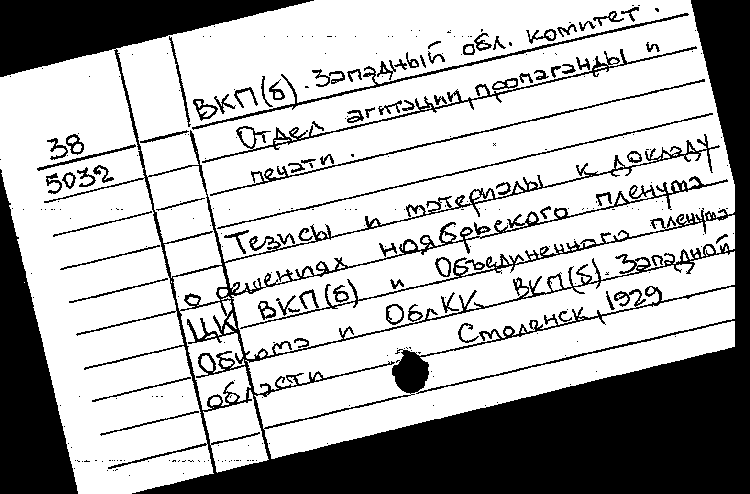 ВКП(б). Западный обл. комитет.
38
Отдел агитации, пропаганды и
5032
печати.
Тезисы и материалы к докладу
о решениях ноябрьского пленума
ЦК ВКП(б) и Объединенного пленума
Обкома и ОблКК ВКП(б). Западной
области Смоленск, 1929.